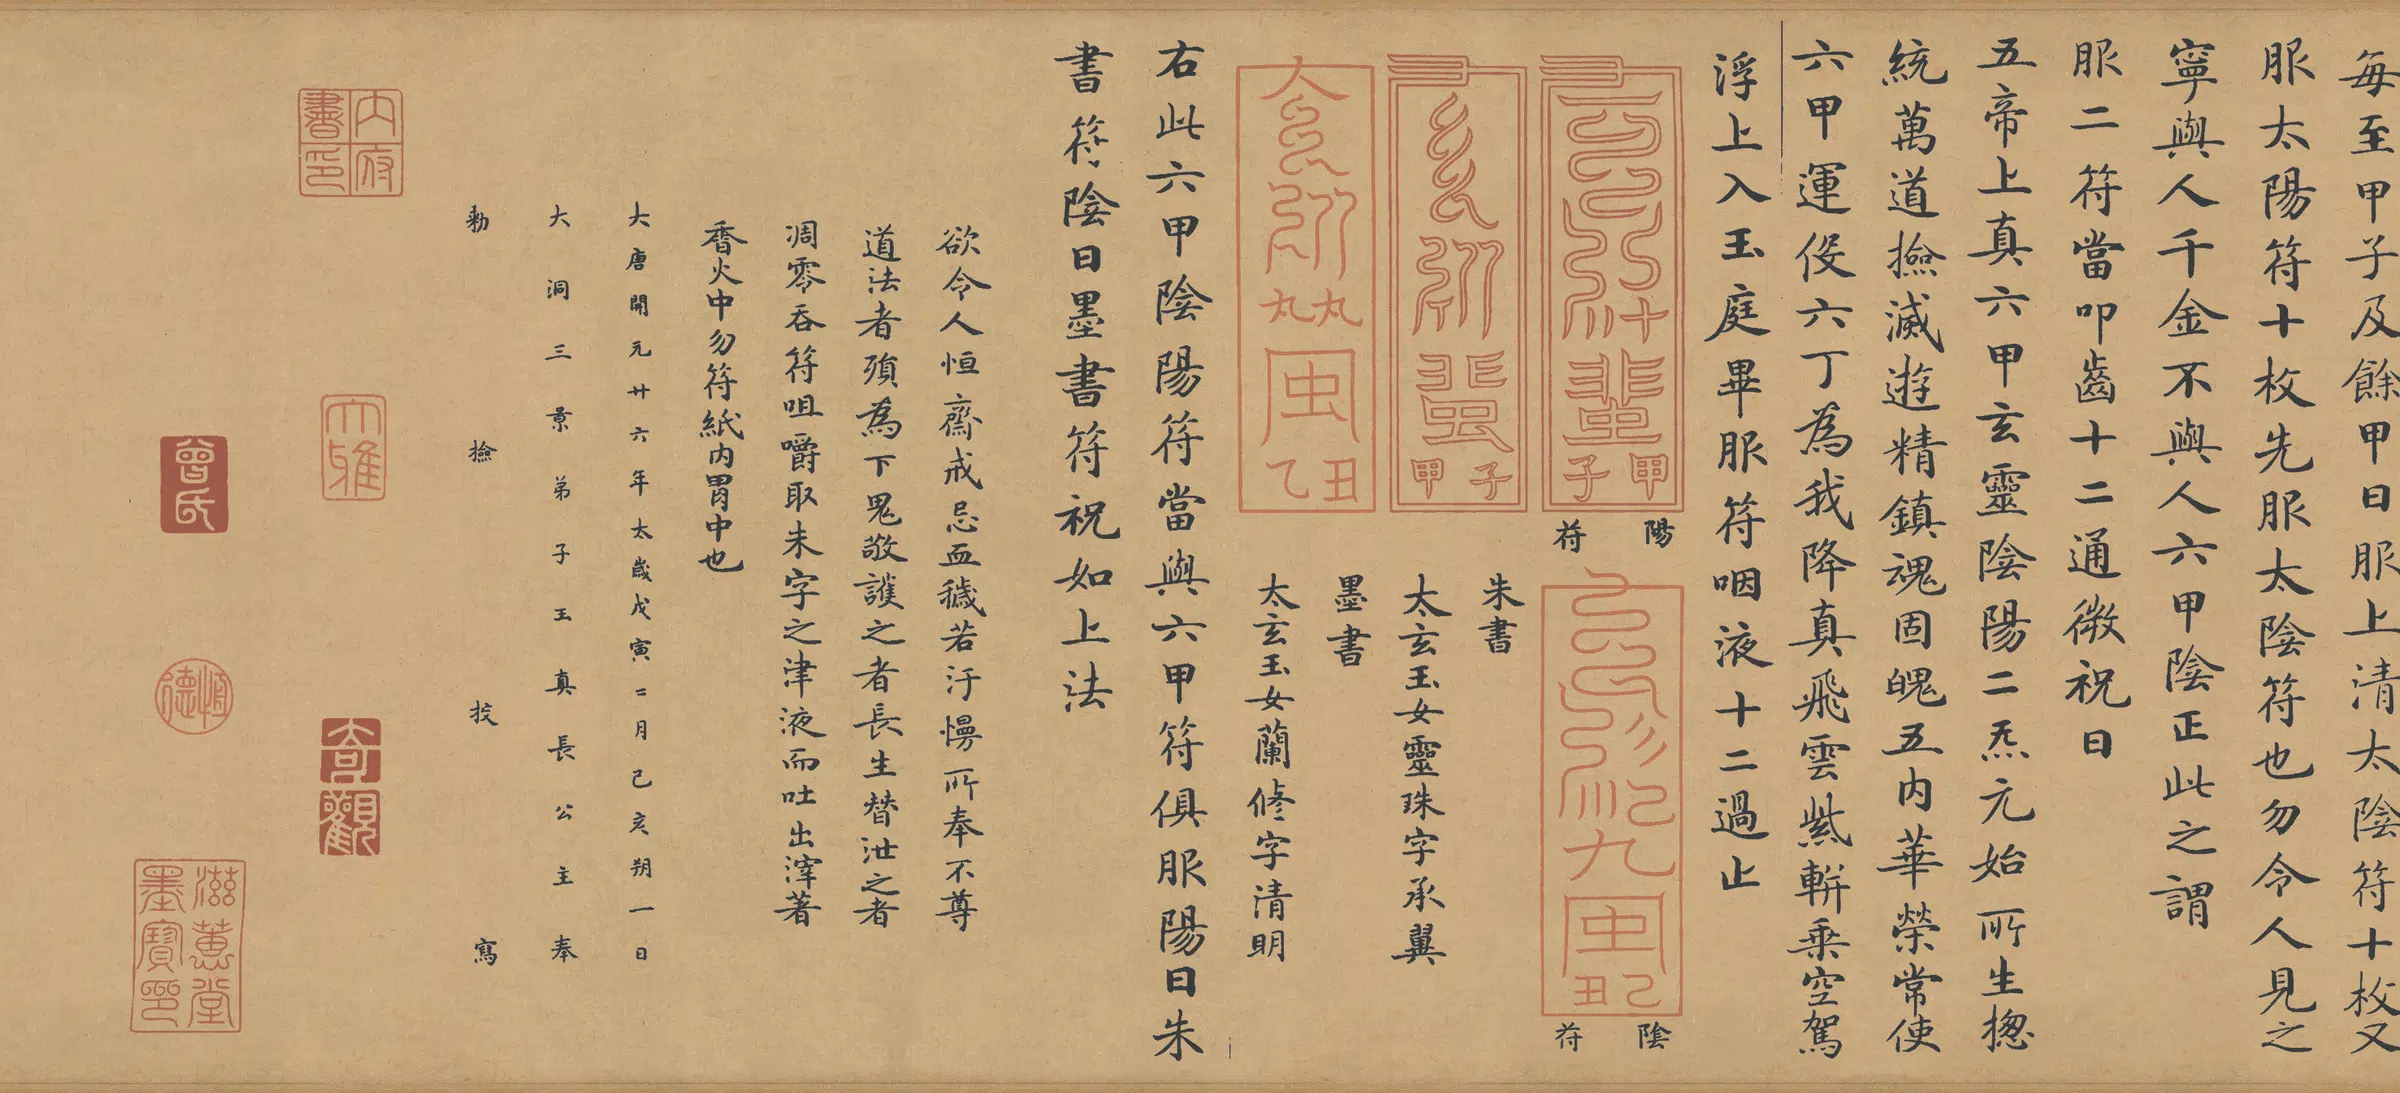 每至甲子及餘甲日服上清太陰符十枚又
服太陽符十枚先服太陰符也勿令人見之
寧與人千金不與人六甲陰正此之謂
服二符當叩齒十二通微祝曰
五帝上真六甲玄靈陰陽二炁元始所生揔
統萬道撿滅遊精鎮魂固魄五內華榮常使
六甲運役六丁為我降真飛雲紫軿乗空駕
浮上入玉庭畢服符咽液十二過止
陽符
甲子
陰符
己丑
朱書
甲子
太玄玉女靈珠字承翼
墨書
乙丑
太玄玉女蘭脩字清明
右此六甲陰陽符當與六甲符俱服陽日朱
書符陰日墨書符祝如上法
欲令人恒齋戒忌血穢若汙慢所奉不尊
道法者殞為下鬼敬護之者長生替泄之者
凋零吞符咀嚼取朱字之津液而吐出滓著
香火中勿符紙內胃中也
大唐開元廿六年太歲戊寅二月己亥朔一日
大洞三景弟子玉真長公主奉
勑撿挍寫
內府書印
大雅
奇觀
曾氏
恒德
滋蕙堂墨寶印